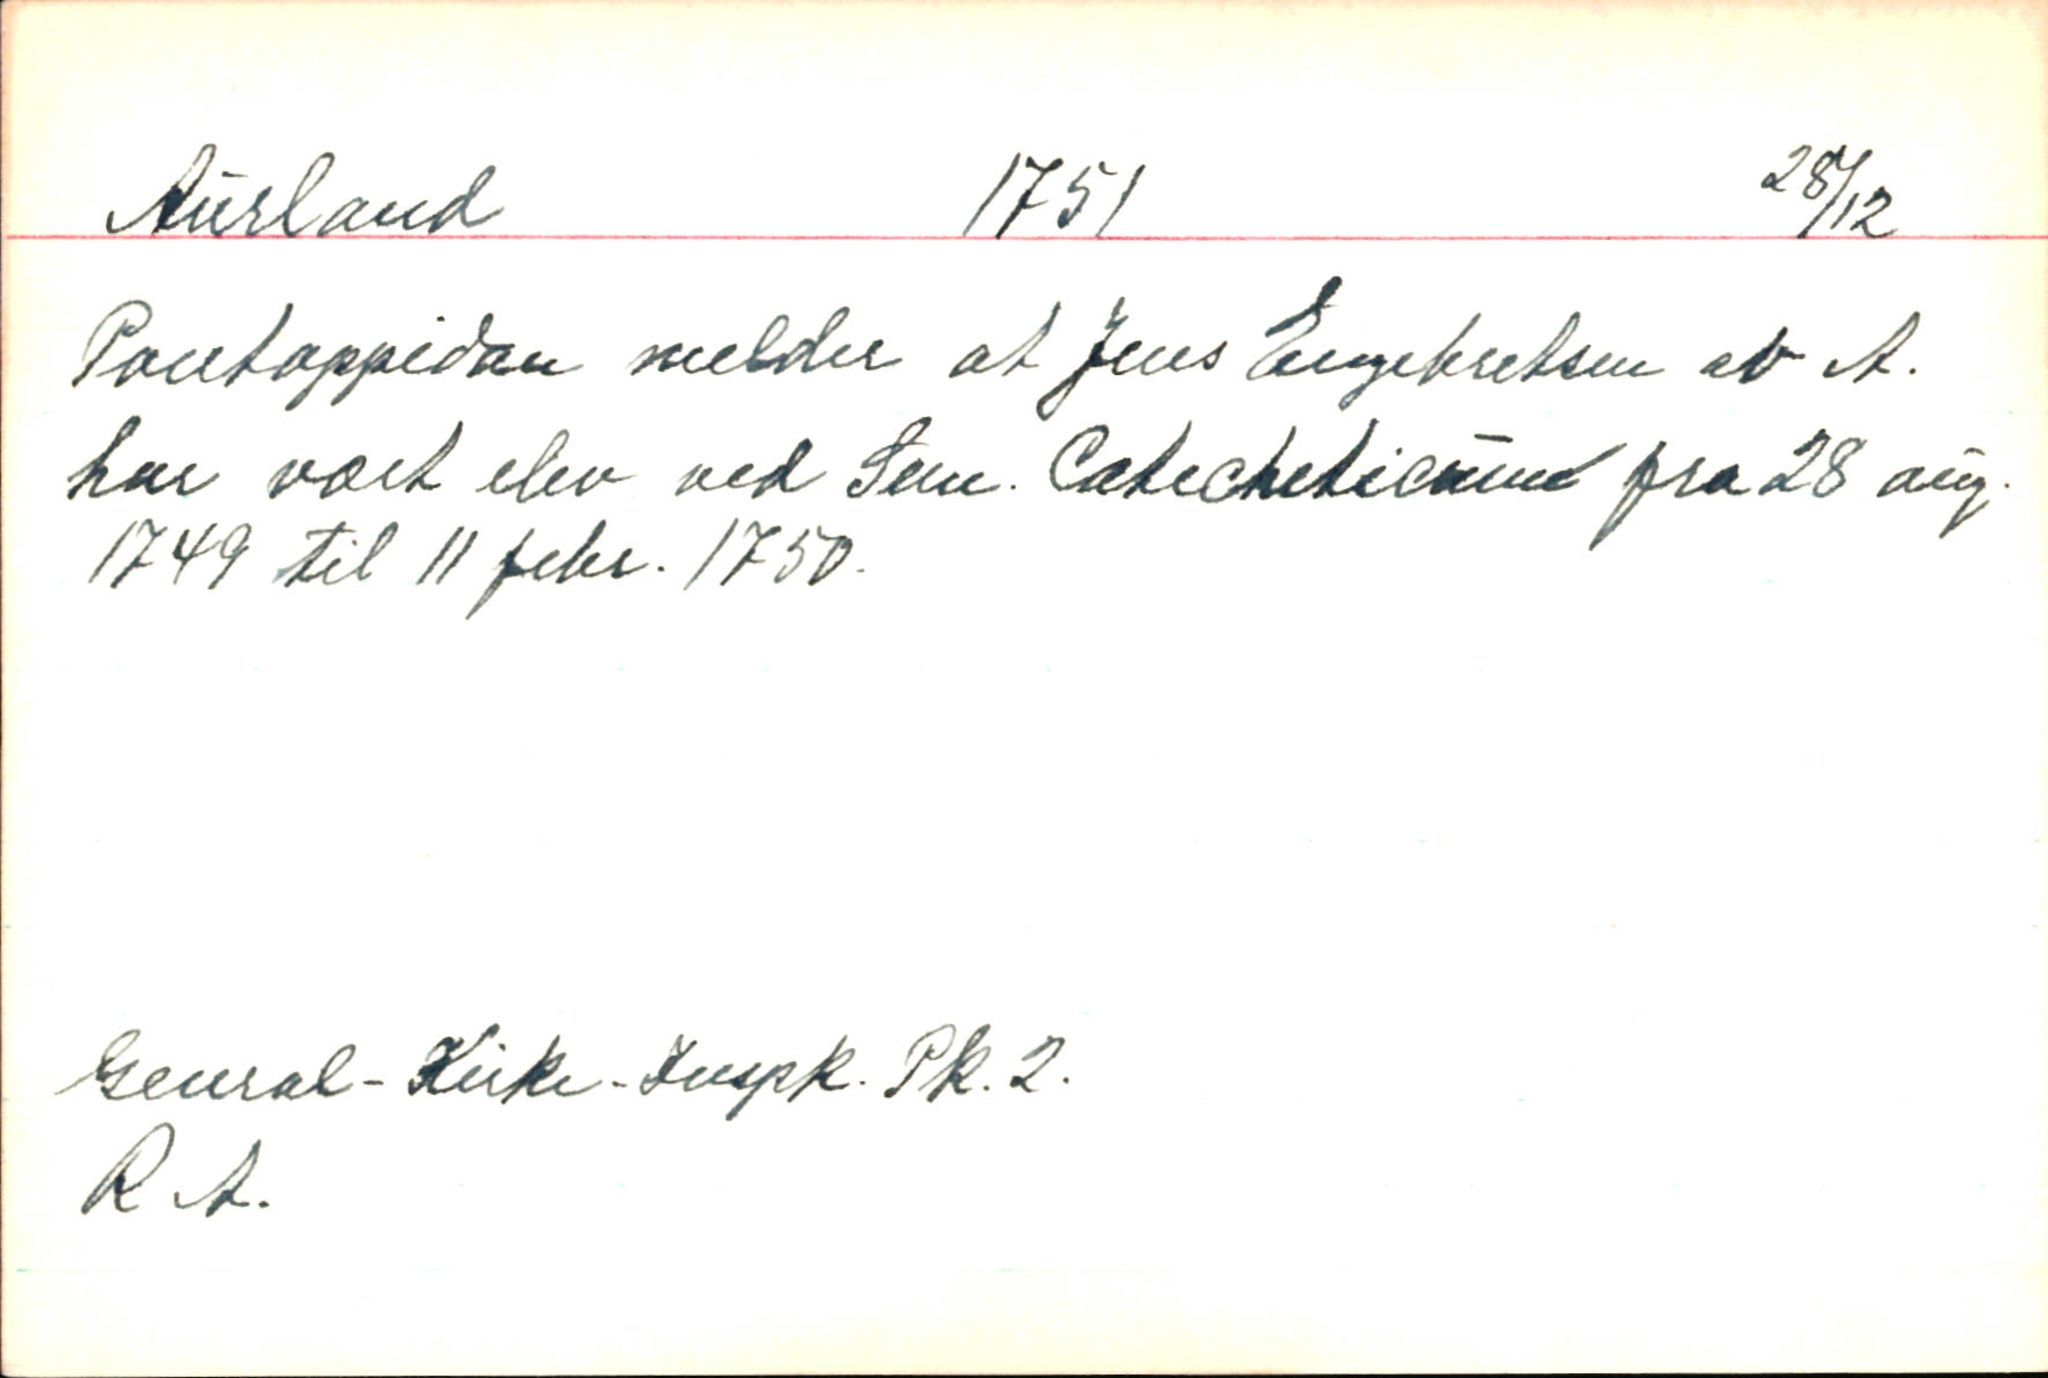 Aurland 1751 28/12
Pontoppidan melder at Jens Engebretsen av A.
har vært elev ved Sem. Catecheticum fra 28 aug.
1749 til 11 febr. 1750.
General-Kirke-Inspk. Pk. 2.
R A.